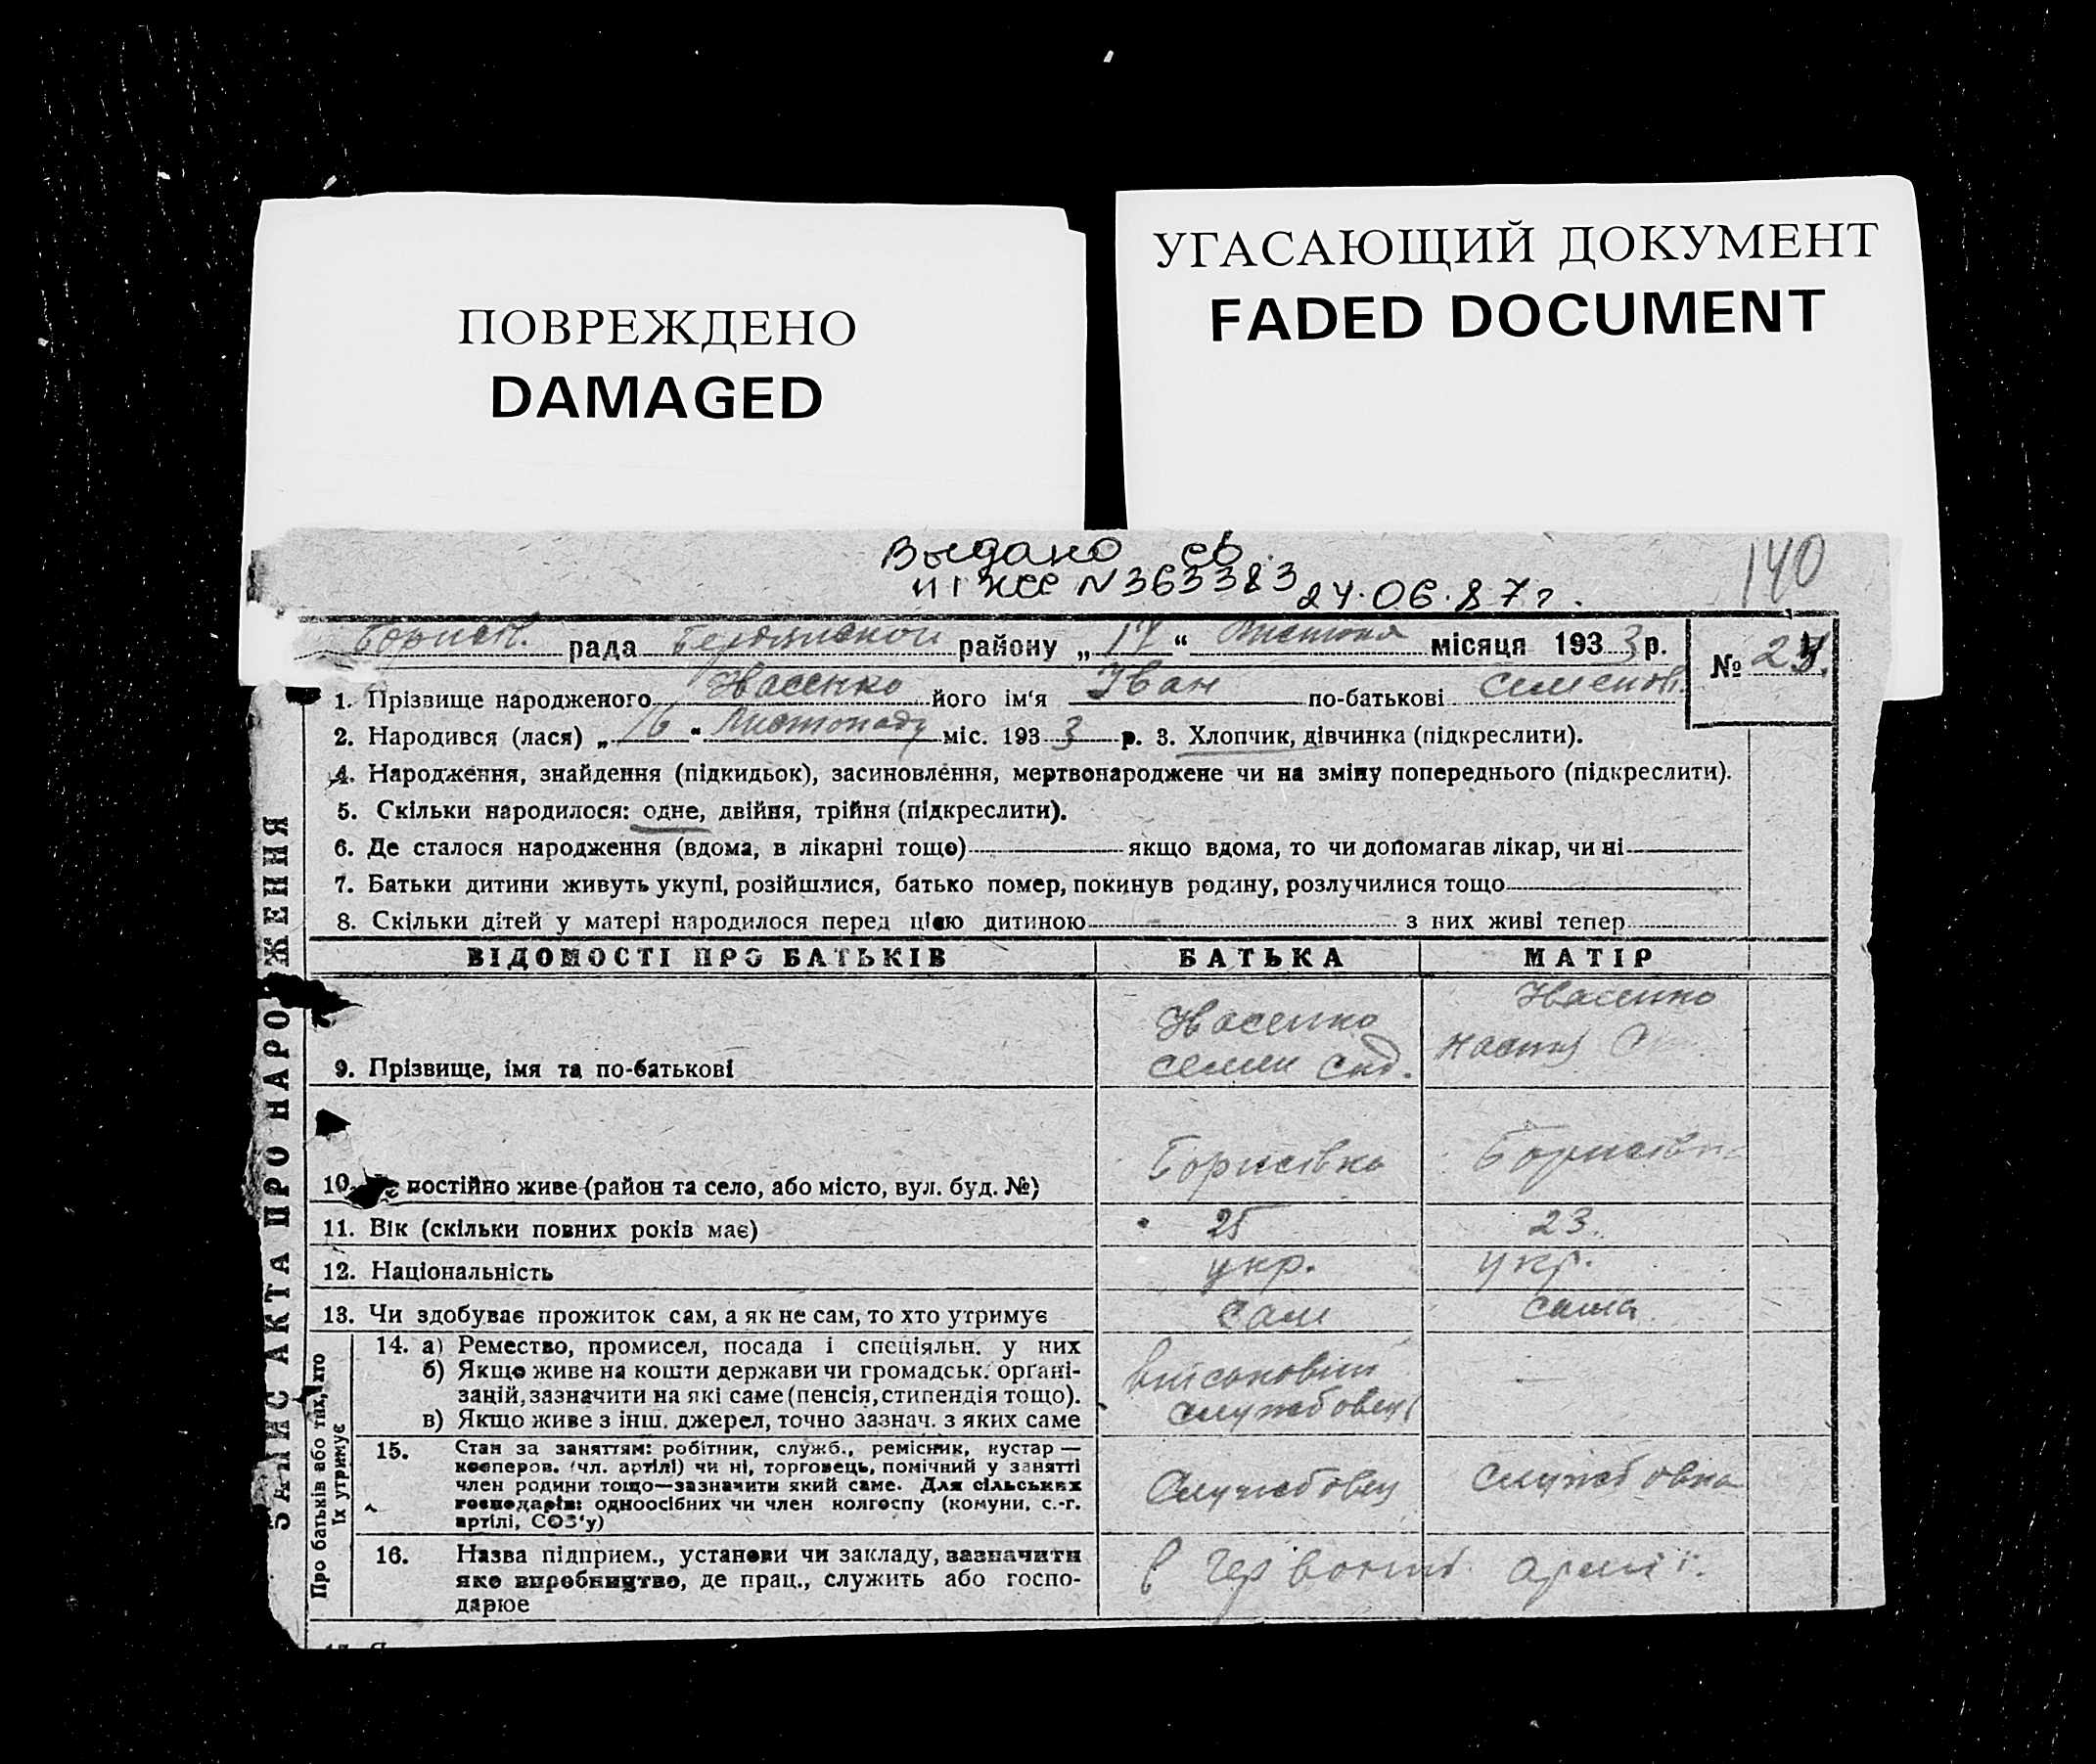 ПОВРЕЖДЕНО
DAMAGED
УГАСАЮЩИЙ ДОКУМЕНТ
FADED DOCUMENT
Выдано св.
ЖС N363383 24.06.87г.
140
рада Бердянської району „17“ місяця 1933 р.
№ 24.
1. Прізвище народженого Івасенко його ім‘я Іван по-батькові Семенов.
2. Народився (лася) „16“ Листопаду міс. 1933 р. 3. Хлопчик, дівчинка (підкреслити).
4. Народження, знайдення (підкидьок), засиновлення, мертвонароджене чи на зміну попереднього (підкреслити).
5. Скільки народилося: одне, двійня, трійня (підкреслити).
6. Де сталося народження (вдома, в лікарні тощо) якщо вдома, то чи допомагав лікар, чи ні
7. Батьки дитини живуть укупі, розійшлися, батько помер, покинув родину, розлучилися тощо
8. Скільки дітей у матері народилося перед цією дитиною з них живі тепер
ЗАПИС АКТА ПРО НАРОДЖЕННЯ
ВІДОМОСТІ ПРО БАТЬКІВ БАТЬКА МАТІР
9. Прізвище, імя та по-батькові
Івасенко
Семен
Івасенко
10. постійно живе (район та село, або місто, вул. буд. №) Борисівка Борисівка
11. Вік (скільки повних років має) 25 23.
12. Національність укр. укр.
13. Чи здобуває прожиток сам, а як не сам, то хто утримує сам сама
Про батьків або тих, хто
їх утримує
14. а) Ремество, промисел, посада і спеціяльн. у них
б) Якщо живе на кошти держави чи громадськ. орґані-
зацій, зазначити на які саме (пенсія, стипендія тощо).
в) Якщо живе з інш. джерел, точно зазнач. з яких саме
військовий
службовец
—
15. Стан за заняттям: робітник, служб., ремісник, кустар —
кооперов. (чл. артілі) чи ні, торговець, помічний у занятті
член родини тощо—зазначити який саме. Для сільських
господарів: одноосібних чи член колгоспу (комуни, с.-г.
артілі, СОЗ‘у)
Службовец службовка
16. Назва підприєм., установи чи закладу, зазначити
яке виробництво, де прац., служить або госпо-
дарює
в Червоній армії.